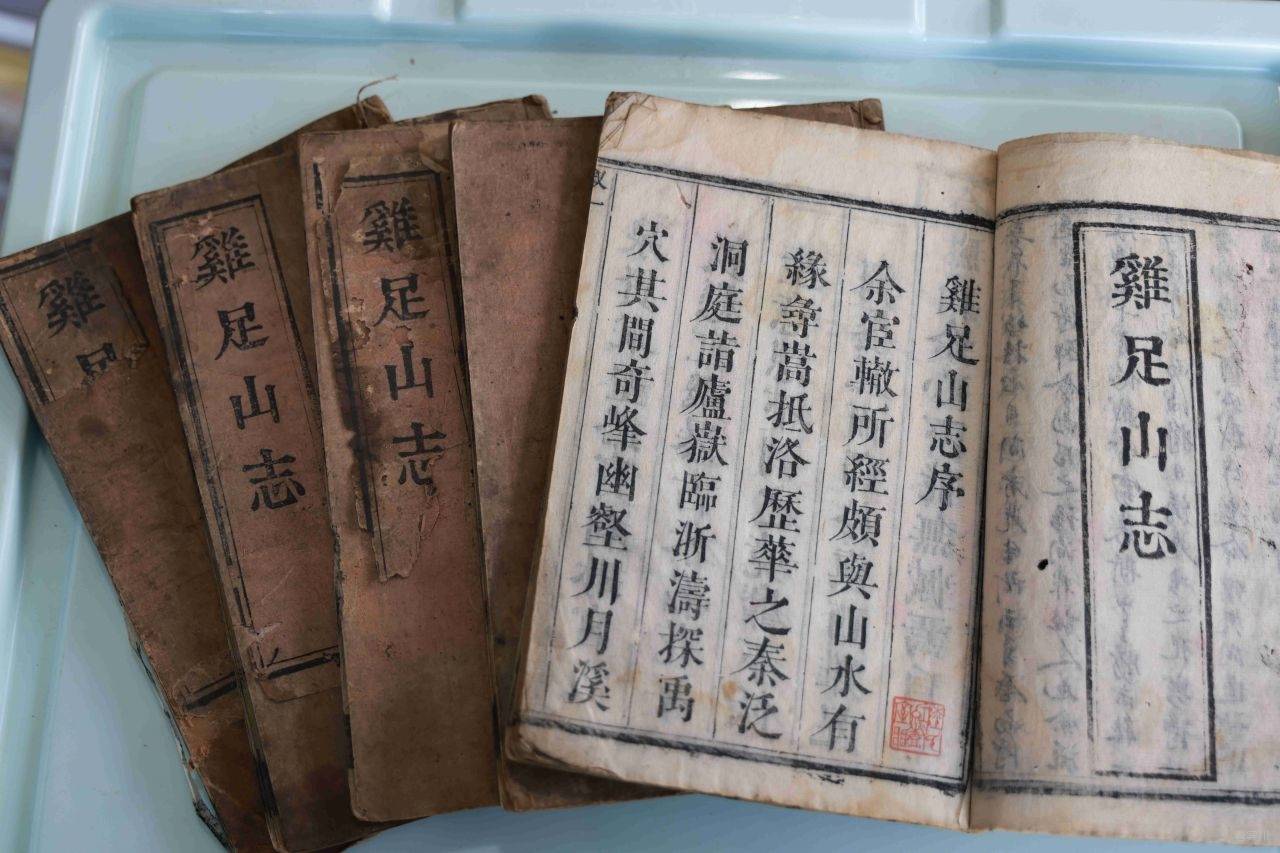 雞足山志
雞足山志序
余宦轍所經頗與山水有
緣尋嵩抵洛歷華之秦泛
洞庭詣廬嶽臨浙濤探禹
穴其間奇峰幽壑川月溪
雞足山志
雞足山志
雞足